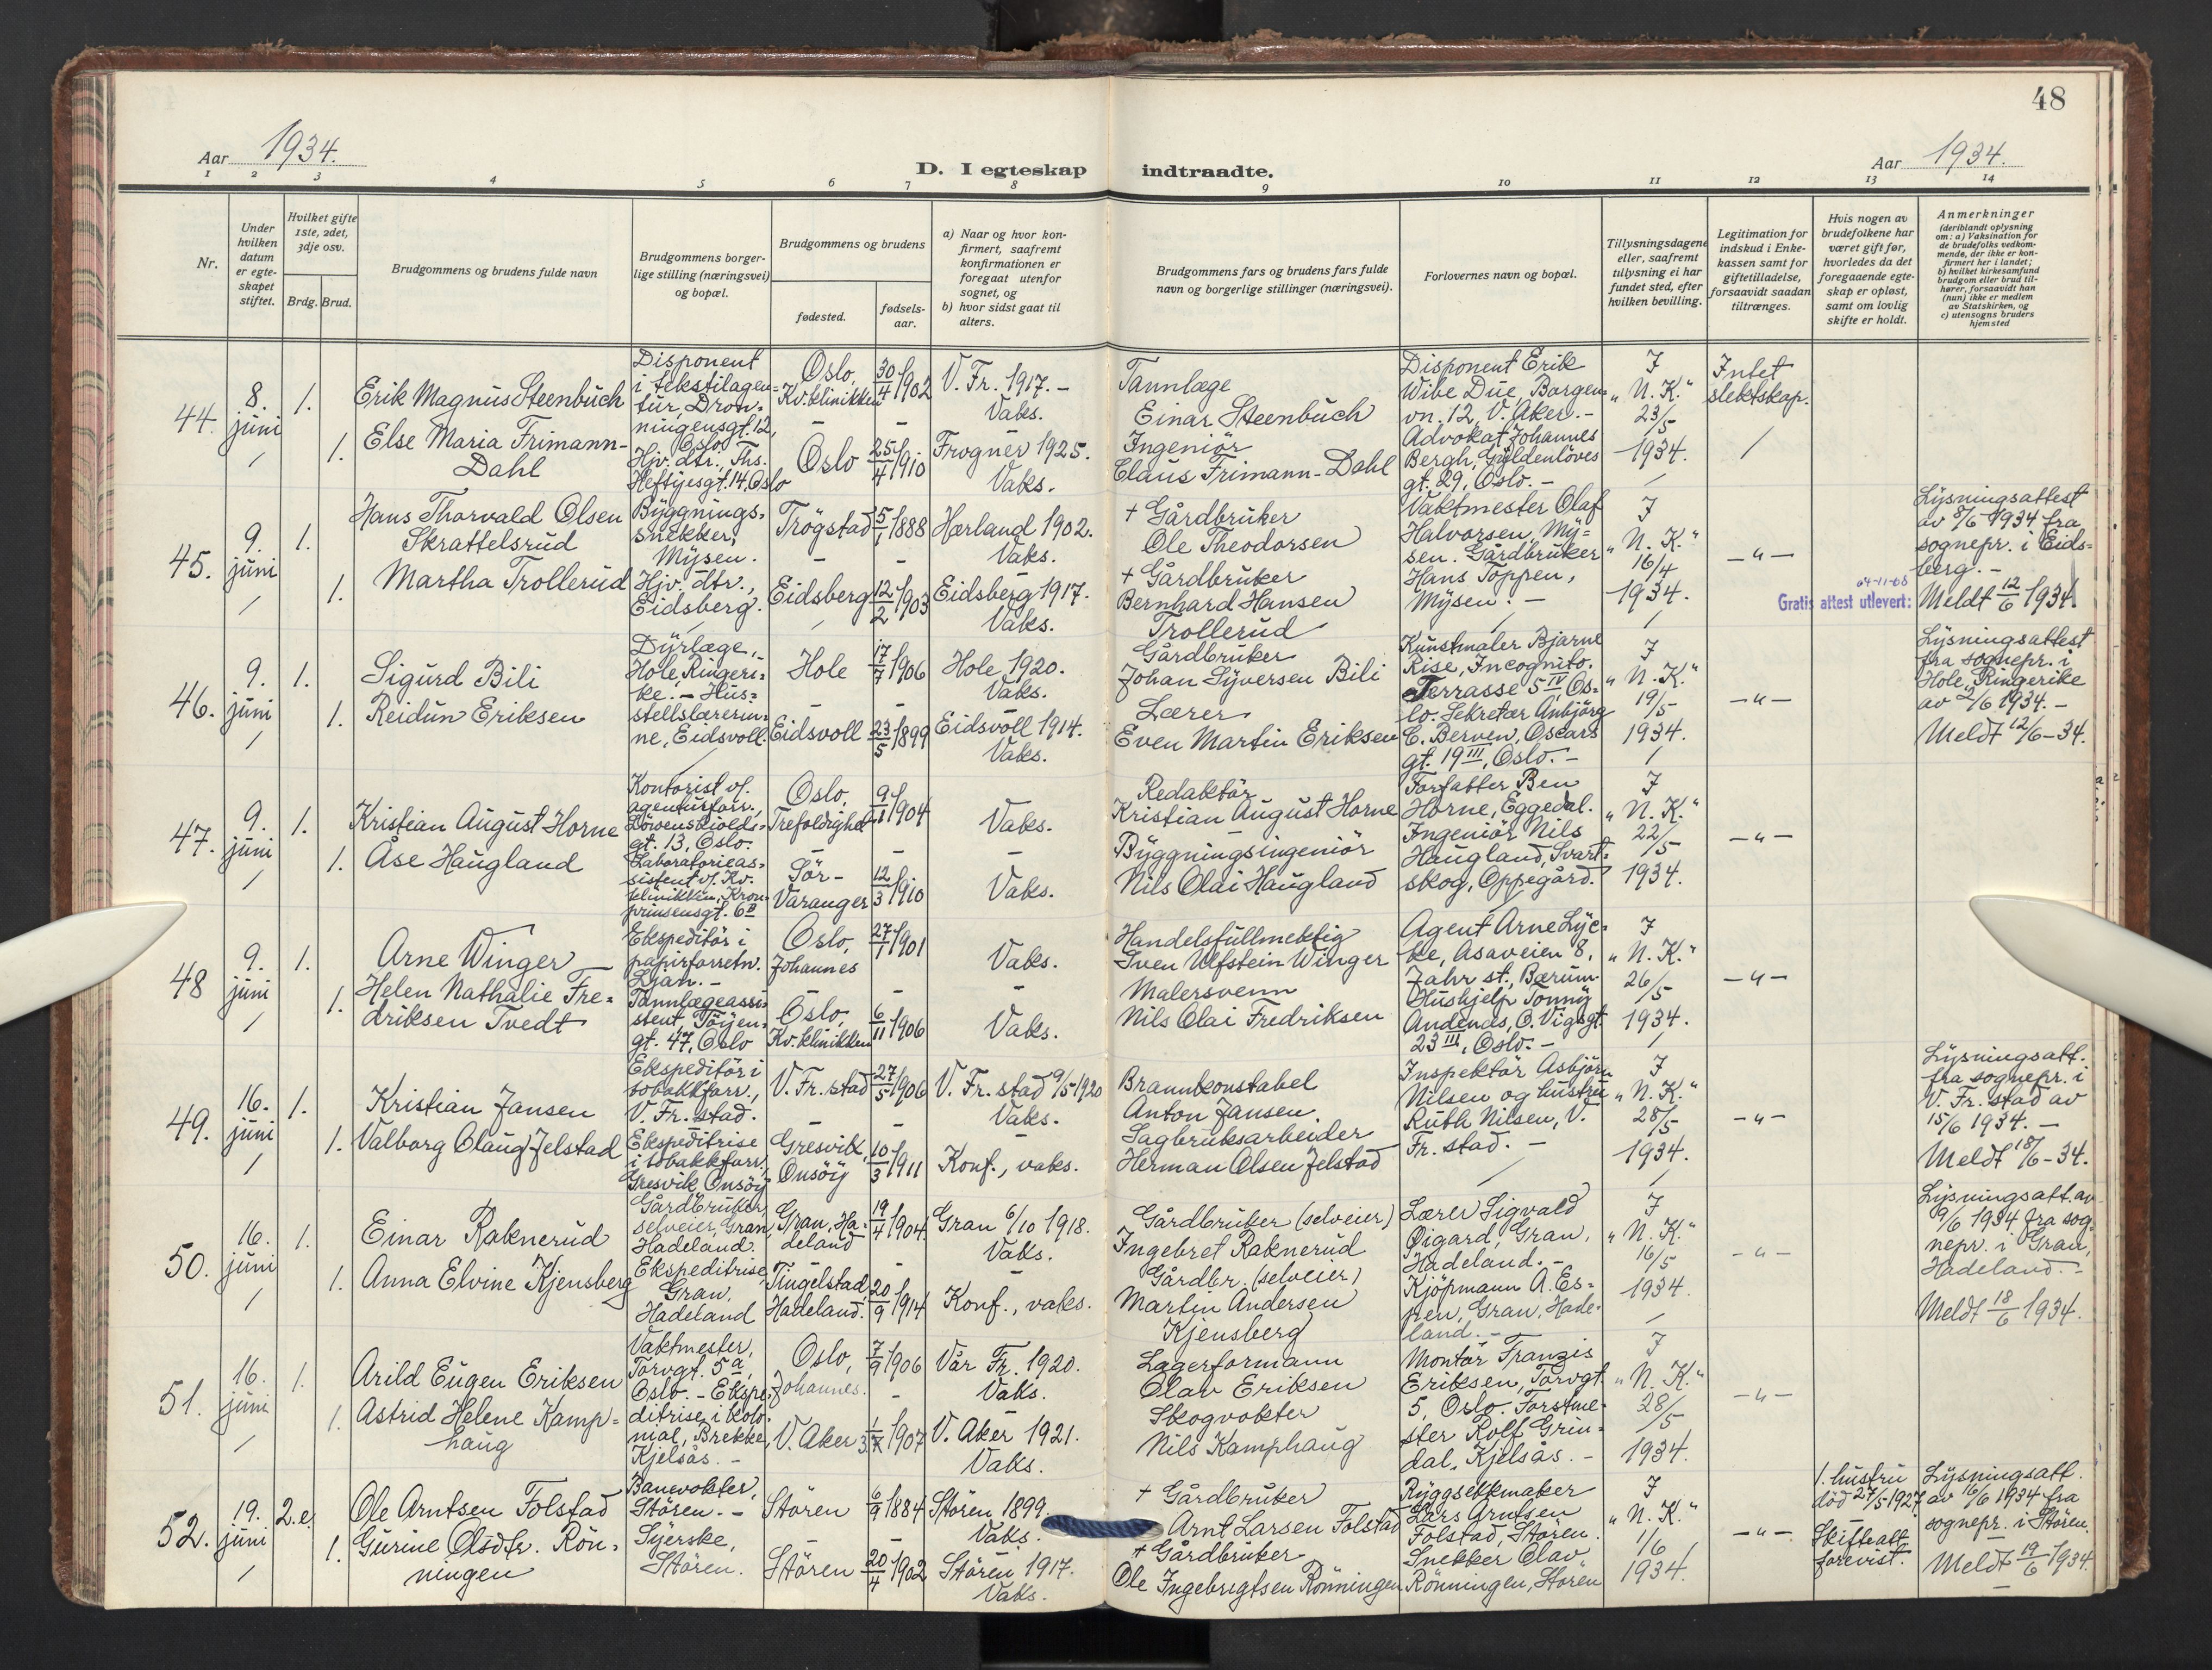 48
Aar 1934.
D. I egteskap indtraadte.
Aar 1934.
1 2 3 4 5 6 7 8 9 10 11 12 13 14
Nr.
Under hvilken datum er egteskapet stiftet.
Hvilket gifte 1ste, 2det, 3dje osv.
Brdg. Brud.
Brudgommens og brudens fulde navn
Brudgommens borgerlige stilling (næringsvei) og bopæl.
Brudgommens og brudens
fødested.
fødselsaar.
a) Naar og hvor konfirmert, saafremt konfirmationen er foregaat utenfor sognet, og
b) hvor sidst gaat til alters.
Brudgommens fars og brudens fars fulde navn og borgerlige stillinger (næringsvei).
Forlovernes navn og bopæl.
Tillysningsdagene eller, saafremt tillysning ei har fundet sted, efter hvilken bevilling.
Legitimation for indskud i Enkekassen samt for giftetilladelse, forsaavidt saadan tiltrænges.
Hvis nogen av brudefolkene har været gift før, hvorledes da det foregaaende egteskap er opløst, samt om lovlig skifte er holdt.
Anmerkninger
(deriblandt oplysning om: a) Vaksination for de brudefolks vedkommende, der ikke er konfirmert her i landet;
b) hvilket kirkesamfund brudgom eller brud tilhører, forsaavidt han (hun) ikke er medlem av Statskirken, og
c) utensogns bruders hjemsted
44. 8. juni 1. 1.
Erik Magnus Steenbuch
Disponent i tekstilagentur, Dronningensgt. 12, Oslo
Oslo, Kv.klinikken 30/4 1902
V. Fr. 1917. – Vaks.
Tannlæge Einar Steenbuch
Else Maria Frimann-Dahl
Hjv. dtr., Ths. Heftyesgt. 14, Oslo
Oslo 25/4 1910
Frogner 1925. Vaks.
Ingeniör Claus Frimann-Dahl
Disponent Erik Wibe Due, Borgenvn. 12, V. Aker. – Advokat Johannes Bergh, Gyldenlöves gt. 29, Oslo. –
I "N. K." 23/5 1934.
Intet slektskap.
45. 9. juni 1. 1.
Hans Thorvald Olsen Skrattelsrud
Bygningssnekker, Mysen.
Trögstad 5/1 1888
Hærland 1902. Vaks.
+ Gårdbruker Ole Theodorsen
Martha Trollerud
Hjv. dtr., Eidsberg.
Eidsberg 12/2 1903
Eidsberg 1917. Vaks.
+ Gårdbruker Bernhard Hansen Trollerud
Vaktmester Olaf Halvorsen, Mysen. Gårdbruker Hans Toppen, Mysen. –
I "N. K." 16/4 1934.
– " –
04-11-68
Gratis attest utlevert:
Lysningsattest av 8/6 1934 fra sognepr. i Eidsberg. –
Meldt 12/6 1934.
46. 9. juni 1. 1.
Sigurd Bili
Dyrlæge, Hole, Ringerike. –
Hole 17/7 1906
Hole 1920. Vaks.
Gårdbruker Johan Syversen Bili
Reidun Eriksen
Husstellslærerinne, Eidsvoll.
Eidsvoll 23/5 1899
Eidsvoll 1914. Vaks.
Lærer Even Martin Eriksen
Kunstmaler Bjarne Rise, Incognito Terrasse 5 IV, Oslo. Sekretær Anbjörg C. Berven, Oscars gt. 19 III, Oslo. –
I "N. K." 19/5 1934.
– " –
Lysningsattest fra sognepr. i Hole, Ringerike av 2/6 1934. –
Meldt 12/6 – 34.
47. 9. juni 1. 1.
Kristian August Horne
Kontorist v/. agenturforr., Lövenskiolds gt. 13, Oslo.
Oslo, Trefoldighet 1904
Vaks.
Redaktör Kristian August Horne
Åse Haugland
Laboratorieassistent v/. Kv. klinikken, Kronprinsensgt. 6 II
Sör-Varanger 12/3 1910
Vaks.
Bygningsingeniör Nils Olai Haugland
Forfatter Ben Horne, Eggedal. Ingeniör Nils Haugland, Svartskog, Oppegård.
I "N. K." 22/5 1934.
– " –
48 9. juni 1. 1.
Arne Winger
Ekspeditör i papirforretn. Ljan. –
Oslo, Johannes 27/7 1901
Vaks.
Handelsfullmektig Sven Ulfstein Winger
Helen Nathalie Fredriksen Tvedt
Tannlægeassistent, Töyengt. 47, Oslo
Oslo, Kv.klinikken 6/11 1906
Vaks.
Malersvenn Nils Olai Fredriksen
Agent Arne Lycke, Asaveien 8, Jahr st., Bærum. Hushjelp Tonny Andenæs, O. Vigsgt. 23 III, Oslo. –
I "N. K." 26/5 1934.
– " –
49. 16. juni 1. 1.
Kristian Jansen
Ekspeditör i tobakkforr., V. Fr.stad.
V. Fr. stad 27/5 1906
V. Fr. stad 9/5 1920 Vaks.
Brannkonstabel Anton Jansen.
Valborg Olaug Jelstad
Ekspeditrise i tobakkforr. Gresvik Onsöy
Gresvik, Onsöy 10/3 1911
Konf., vaks.
Sagbruksarbeider Herman Olsen Jelstad
Inspektör Asbjörn Nilsen og hustru Ruth Nilsen, V. Fr. stad. –
I "N. K." 28/5 1934.
– " –
Lysningsatt. fra sognepr. i V. Fr. stad av 15/6 1934. –
Meldt 18/6 – 34.
50. 16. juni 1. 1.
Einar Raknerud
Gårdbruker, selveier, Gran, Hadeland.
Gran, Hadeland 19/4 1904.
Gran 6/10 1918. Vaks.
Gårdbruker (selveier) Ingebret Raknerud
Anna Elvine Kjensberg
Ekspeditrise, Gran, Hadeland
Tingelstad, Hadeland. 20/9 1914
Konf., vaks.
Gårdbr. (selveier) Martin Andersen Kjensberg
Lærer Sigvald Öigard, Gran, Hadeland. – Kjöpmann A. Espen, Gran, Hadeland. –
I "N. K." 16/5 1934.
– " –
Lysningsatt. av 9/6 1934 fra sognepr. i Gran, Hadeland. –
Meldt 18/6 1934.
51. 16. juni 1. 1.
Arild Eugen Eriksen
Vaktmester, Torvgt. 5a, Oslo. –
Oslo, Johannes. 7/9 1906
Vår Fr. 1920. Vaks.
Lagerformann Olav Eriksen
Astrid Helene Kamphaug
Ekspeditrise i kolonial, Brekke, Kjelsås. –
V. Aker 1907
V. Aker 1921. Vaks.
Skogvokter Nils Kamphaug
Montör Franzis Eriksen, Torvgt. 5, Oslo. Forstmester Rolf Grindal, Kjelsås. –
I "N. K." 28/5 1934.
– " –
52. 19. juni 2.e 1.
Ole Arntsen Folstad
Banevokter, Stören. –
Stören 6/9 1884
Stören 1899. Vaks.
+ Gårdbruker Arnt Larsen Folstad
Gurine Olsdtr. Rönningen
Syerske, Stören.
Stören 20/4 1902
Stören 1917. Vaks.
+ Gårdbruker Ole Ingebrigtsen Rönningen
Ryggsekkmaker Lars Arntsen Folstad, Stören. Snekker Olav Rönningen, Stören
I "N. K." 1/6 1934.
– " –
1. hustru död 27/5 1927. Skifteatt. forevist.
Lysningsatt. av 16/6 1934 fra sognepr. i Stören.
Meldt 19/6 1934.